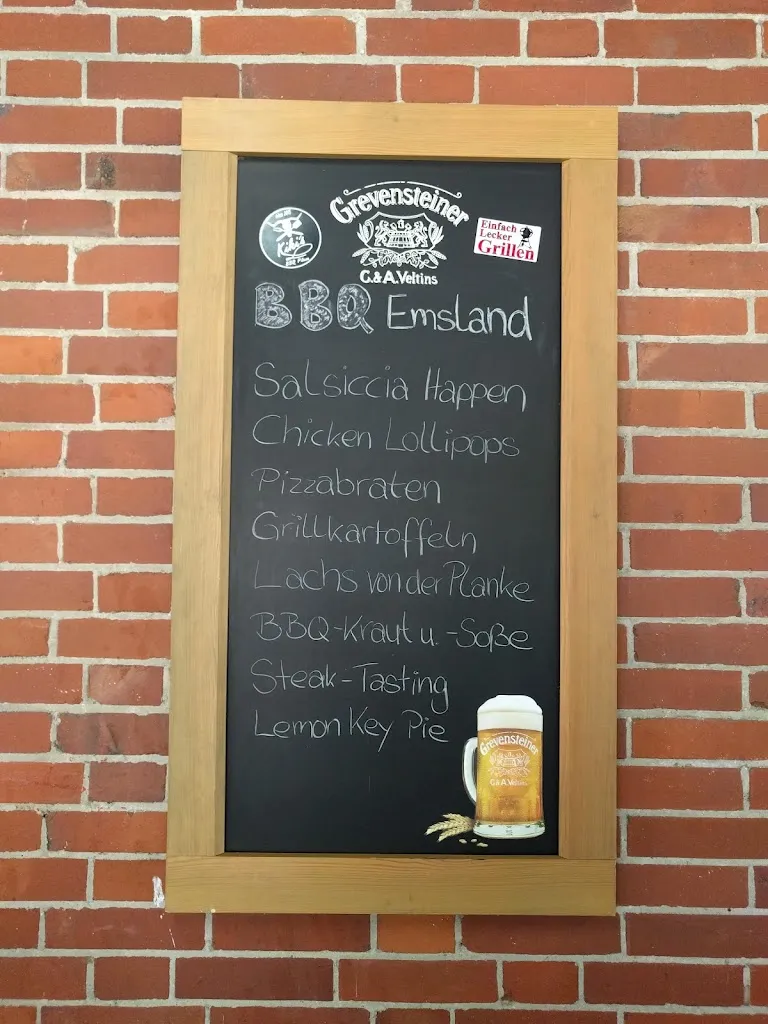 Grevensteiner
Kiki's
Einfach
Lecker
Grillen
C.& A. Veltins
BBQ Emsland
Salsiccia Happen
Chicken Lollipops
Pizzabraten
Grillkartoffeln
Lachs von der Planke
BBQ-Kraut u. -Soße
Steak-Tasting
Lemon Key Pie
Grevensteiner
C.& A. Veltins